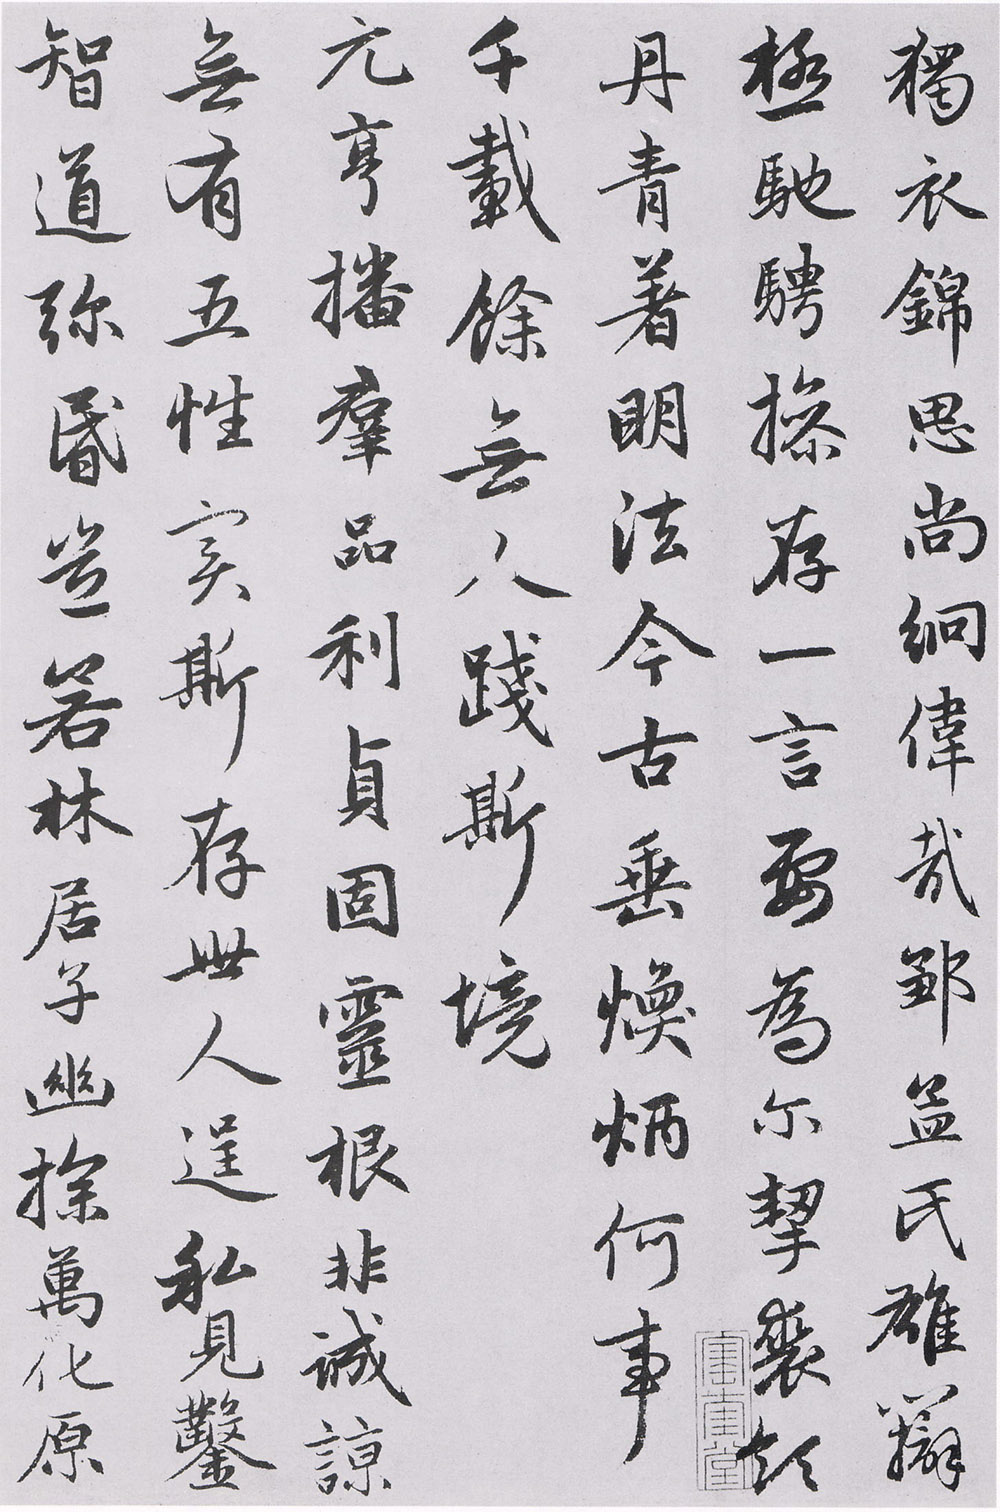 獨衣錦思尚絅偉哉鄒孟氏雄辯
極馳騁操存一言要為尔挈裘領
丹青著明法今古垂煥炳何事
千載餘無人踐斯境
元亨播羣品利貞固靈根非誠諒
無有五性实斯存世人逞私見鑿
智道弥昏豈若林居子幽探萬化原